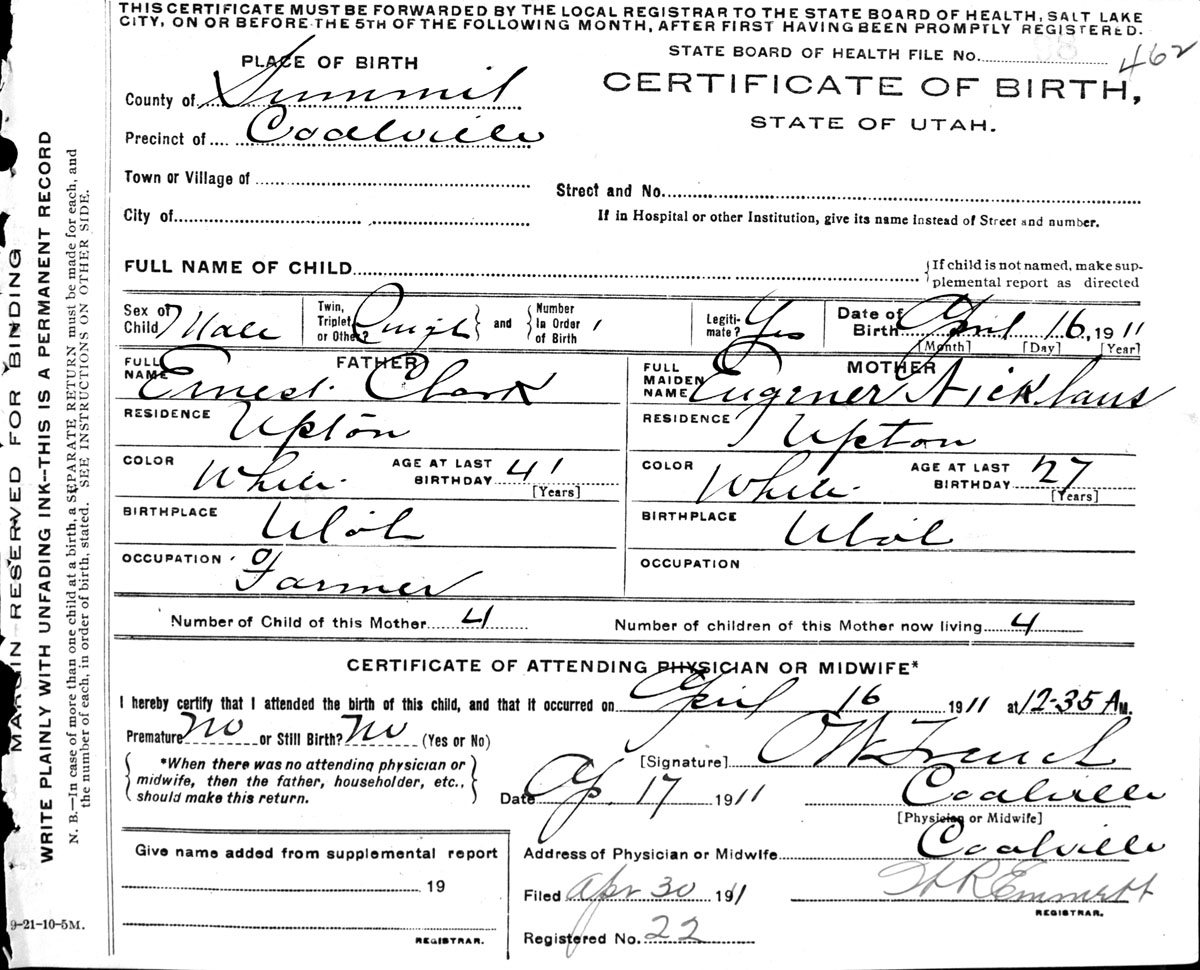 THIS CERTIFICATE MUST BE FORWARDED BY THE LOCAL REGISTRAR TO THE STATE BOARD OF HEALTH, SALT LAKE
CITY, ON OR BEFORE THE 5TH OF THE FOLLOWING MONTH, AFTER FIRST HAVING BEEN PROMPTLY REGISTERED.
STATE BOARD OF HEALTH FILE No. 462
PLACE OF BIRTH
CERTIFICATE OF BIRTH,
STATE OF UTAH.
County of Summit
Precinct of Coalville
Town or Village of
Street and No.
City of
If in Hospital or other Institution, give its name instead of Street and number.
FULL NAME OF CHILD
{If child is not named, make sup-
plemental report as directed
Sex of Child Male
Twin, Triplet, or Other? Single } and { Number in Order of Birth 1
Legiti-mate? Yes
Date of Birth April 16, 1911
[Month] [Day] [Year]
FATHER
FULL NAME Ernest Clark
RESIDENCE Upton
COLOR White AGE AT LAST BIRTHDAY 41
[Years]
BIRTHPLACE Utah
OCCUPATION Farmer
MOTHER
FULL MAIDEN NAME Eugener Nicklaus
RESIDENCE Upton
COLOR White AGE AT LAST BIRTHDAY 27
[Years]
BIRTHPLACE Utah
OCCUPATION
Number of Child of this Mother 4 Number of children of this Mother now living 4
CERTIFICATE OF ATTENDING PHYSICIAN OR MIDWIFE*
I hereby certify that I attended the birth of this child, and that it occurred on April 16 1911 at 12-35 A M.
Premature No or Still Birth? No (Yes or No)
*When there was no attending physician or
midwife, then the father, householder, etc.,
should make this return.
[Signature]
Date Ap. 17 1911 Coalville
[Physician or Midwife]
Address of Physician or Midwife Coalville
Give name added from supplemental report
19
REGISTRAR.
Filed Apr 30 1911 H R Emmett
REGISTRAR.
Registered No. 22
9-21-10-5M.
MARGIN RESERVED FOR BINDING
WRITE PLAINLY WITH UNFADING INK--THIS IS A PERMANENT RECORD
N. B.—In case of more than one child at a birth, a SEPARATE RETURN must be made for each, and
the number of each, in order of birth, stated. SEE INSTRUCTIONS ON OTHER SIDE.